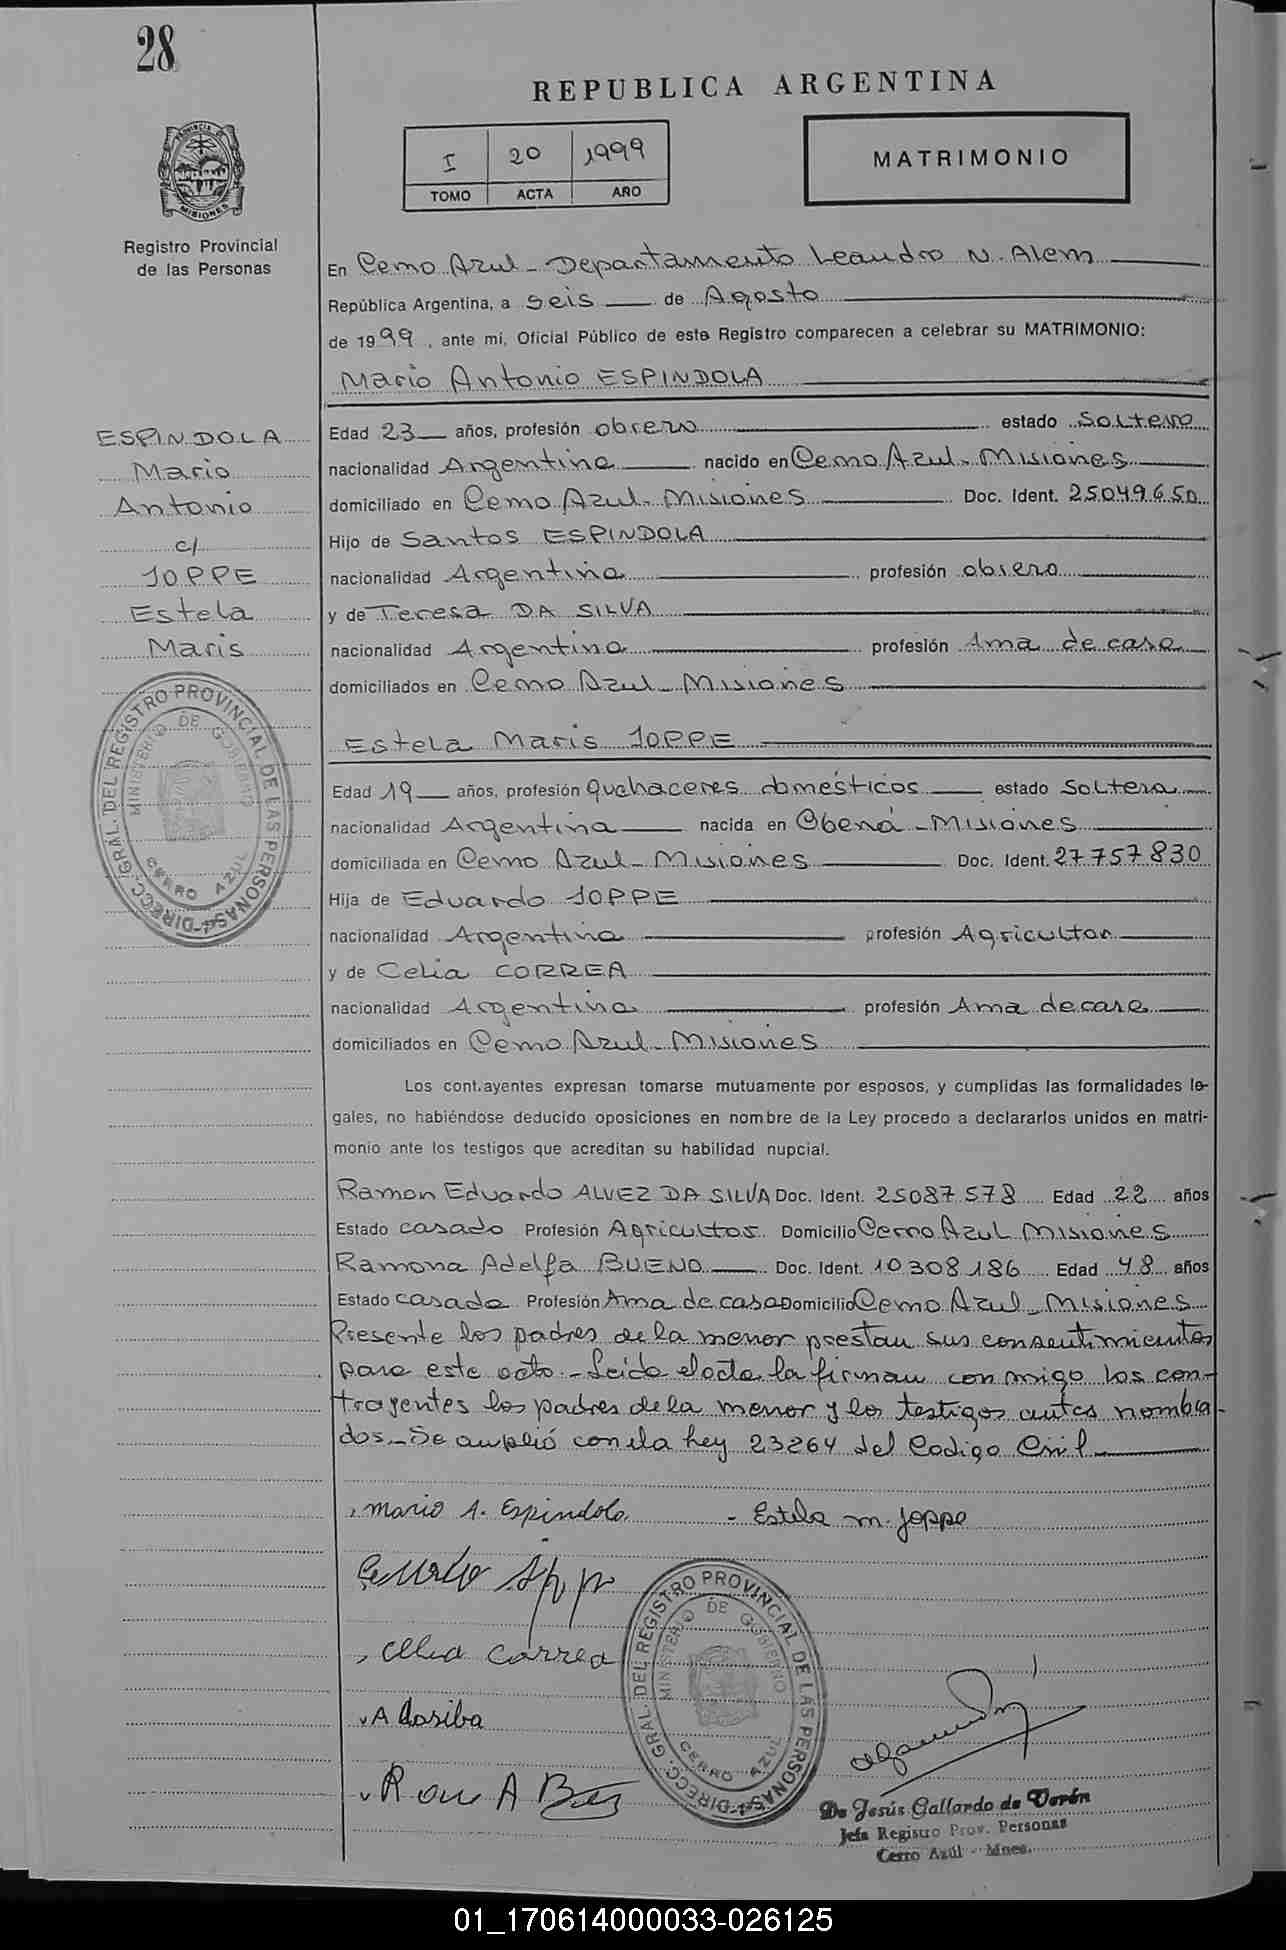 28
REPUBLICA ARGENTINA
I 20 1999
TOMO ACTA AÑO
MATRIMONIO
PROVINCIA DE MISIONES
Registro Provincial
de las Personas
En Cerro Azul - Departamento Leandro N. Alem
República Argentina, a seis de Agosto
de 1999, ante mí, Oficial Público de este Registro comparecen a celebrar su MATRIMONIO:
Mario Antonio ESPINDOLA
ESPINDOLA
Mario
Antonio
c/
JOPPE
Estela
Maris
Edad 23 años, profesión obrero estado Soltero
nacionalidad Argentina nacido en Cerro Azul - Misiones
domiciliado en Cerro Azul - Misiones Doc. Ident. 25049650
Hijo de Santos ESPINDOLA
nacionalidad Argentina profesión obrero
y de Teresa DA SILVA
nacionalidad Argentina profesión Ama de casa
domiciliados en Cerro Azul - Misiones
Estela Maris JOPPE
Edad 19 años, profesión quehaceres domésticos estado Soltera
nacionalidad Argentina nacida en Oberá - Misiones
domiciliada en Cerro Azul - Misiones Doc. Ident. 27757830
Hija de Eduardo JOPPE
nacionalidad Argentina profesión Agricultor
y de Celia CORREA
nacionalidad Argentina profesión Ama de casa
domiciliados en Cerro Azul - Misiones
DIRECC. GRAL. DEL REGISTRO PROVINCIAL DE LAS PERSONAS
MINISTERIO DE GOBIERNO
CERRO AZUL
Los contrayentes expresan tomarse mutuamente por esposos, y cumplidas las formalidades le-
gales, no habiéndose deducido oposiciones en nombre de la Ley procedo a declararlos unidos en matri-
monio ante los testigos que acreditan su habilidad nupcial.
Ramon Eduardo ALVEZ DA SILVA Doc. Ident. 25087578 Edad 22 años
Estado casado Profesión Agricultor Domicilio Cerro Azul Misiones
Ramona Adelfa BUENO Doc. Ident. 10308186 Edad 48 años
Estado casada Profesión Ama de casa Domicilio Cerro Azul - Misiones
Presente los padres de la menor prestan sus consentimientos
para este acto.- Leida el acta la firman con migo los con-
trayentes los padres de la menor y los testigos antes nombra-
dos.- Se cumplió con la Ley 23264 del Codigo Civil
Mario A. Espindola - Estela M. Joppe
Celia Correa
DIRECC. GRAL. DEL REGISTRO PROVINCIAL DE LAS PERSONAS
MINISTERIO DE GOBIERNO
CERRO AZUL
De Jesús Gallardo de Verón
Jefa Registro Prov. Personas
Cerro Azúl - Mnes.
01_170614000033-026125